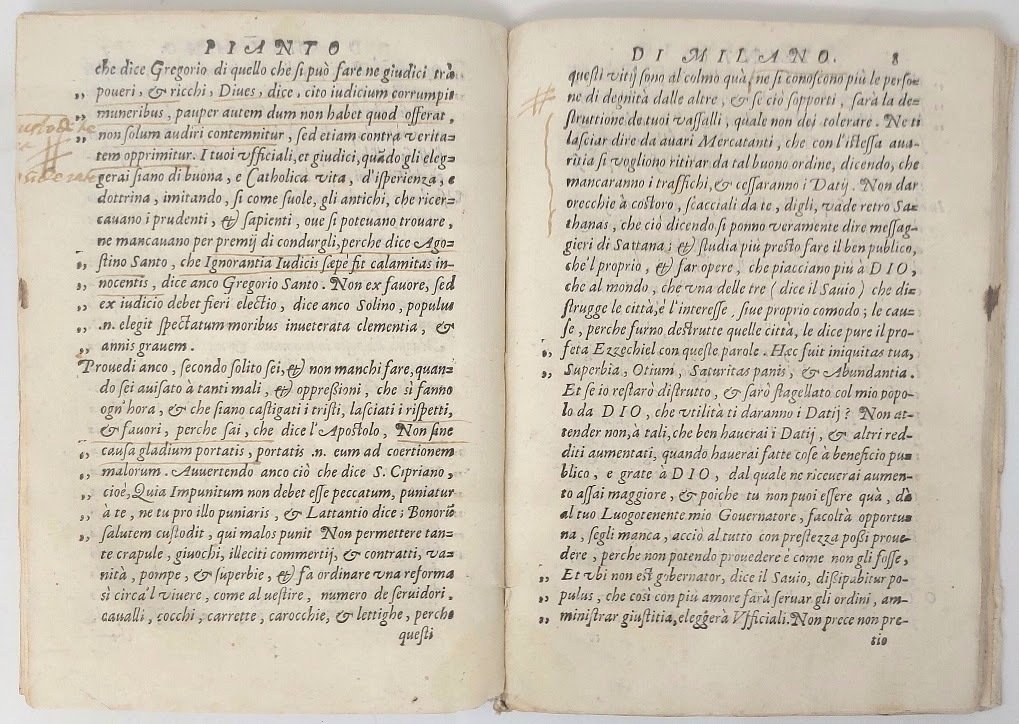 PIANTO
che dice Gregorio di quello che si può fare ne giudici trà
„ poueri, & ricchi, Diues, dice, cito iudicium corrumpit
„ muneribus, pauper autem dum non habet quod offerat,
„ non solum audiri contemnitur, sed etiam contra verita=
„ tem opprimitur. I tuoi vfficiali, et giudici, quādo gli eleg=
gerai siano di buona, e Catholica vita, d'isperienza, e
dottrina, imitando, si come suole, gli antichi, che ricer=
cauano i prudenti, & sapienti, oue si poteuano trouare,
ne mancauano per premij di condurgli, perche dice Ago=
„ stino Santo, che Ignorantia Iudicis sæpè fit calamitas in=
„ nocentis, dice anco Gregorio Santo. Non ex fauore, sed
„ ex iudicio debet fieri electio, dice anco Solino, populus
„ .n. elegit spectatum moribus inueterata clementia, &
„ annis grauem.
Prouedi anco, secondo solito sei, & non manchi fare, quan=
do sei auisato à tanti mali, & oppressioni, che si fanno
ogn'hora, & che siano castigati i tristi, lasciati i rispetti,
& fauori, perche sai, che dice l'Apostolo, Non sine
„ causa gladium portatis, portatis .n. eum ad coertionem
„ malorum. Auuertendo anco ciò che dice S. Cipriano,
„ cioè, Quia Impunitum non debet esse peccatum, puniatur
„ à te, ne tu pro illo puniaris, & Lattantio dice; Bonorū
„ salutem custodit, qui malos punit Non permettere tan=
te crapule, giuochi, illeciti commertij, & contratti, va=
nità, pompe, & superbie, & fa ordinare vna reforma
sì circa'l viuere, come al vestire, numero de seruidori,
caualli, cocchi, carrette, carocchie, & lettighe, perche
questi
DI MILANO. 8
questi vitij sono al colmo quà, ne si conoscono più le perso=
ne di degnità dalle altre, & se ciò sopporti, sarà la de=
struttione de tuoi vassalli, quale non dei tolerare. Ne ti
lasciar dire da auari Mercatanti, che con l'istessa aua=
ritia si vogliono ritirar da tal buono ordine, dicendo, che
mancaranno i traffichi, & cessaranno i Datij. Non dar
orecchie à costoro, scacciali da te, digli, vade retro Sa=
thanas, che ciò dicendo si ponno veramente dire messag=
gieri di Sattana; & studia più presto fare il ben publico,
che'l proprio, & far opere, che piacciano più à DIO,
che al mondo, che vna delle tre (dice il Sauio) che di=
strugge le città, è l'interesse, siue proprio comodo; le cau=
se, perche furno destrutte quelle città, le dice pure il pro=
„ feta Ezzechiel con queste parole. Hæc fuit iniquitas tua,
„ Superbia, Otium, Saturitas panis, & Abundantia.
Et se io restarò distrutto, & sarò flagellato col mio popo=
lo da DIO, che vtilità ti daranno i Datij? Non at=
tender non, à tali, che ben hauerai i Datij, & altri red=
diti aumentati, quando hauerai fatte cose à beneficio pu=
blico, e grate à DIO, dal quale ne riceuerai aumen=
to assai maggiore, & poiche tu non puoi essere quà, dà
al tuo Luogotenente mio Gouernatore, facoltà opportu=
na, segli manca, acciò al tutto con prestezza possi proue=
dere, perche non potendo prouedere è come non gli fosse,
„ Et vbi non est gubernator, dice il Sauio, dissipabitur po=
„ pulus, che così con più amore farà seruar gli ordini, am=
„ ministrar giustitia, eleggerà Vfficiali. Non prece non pre=
tio